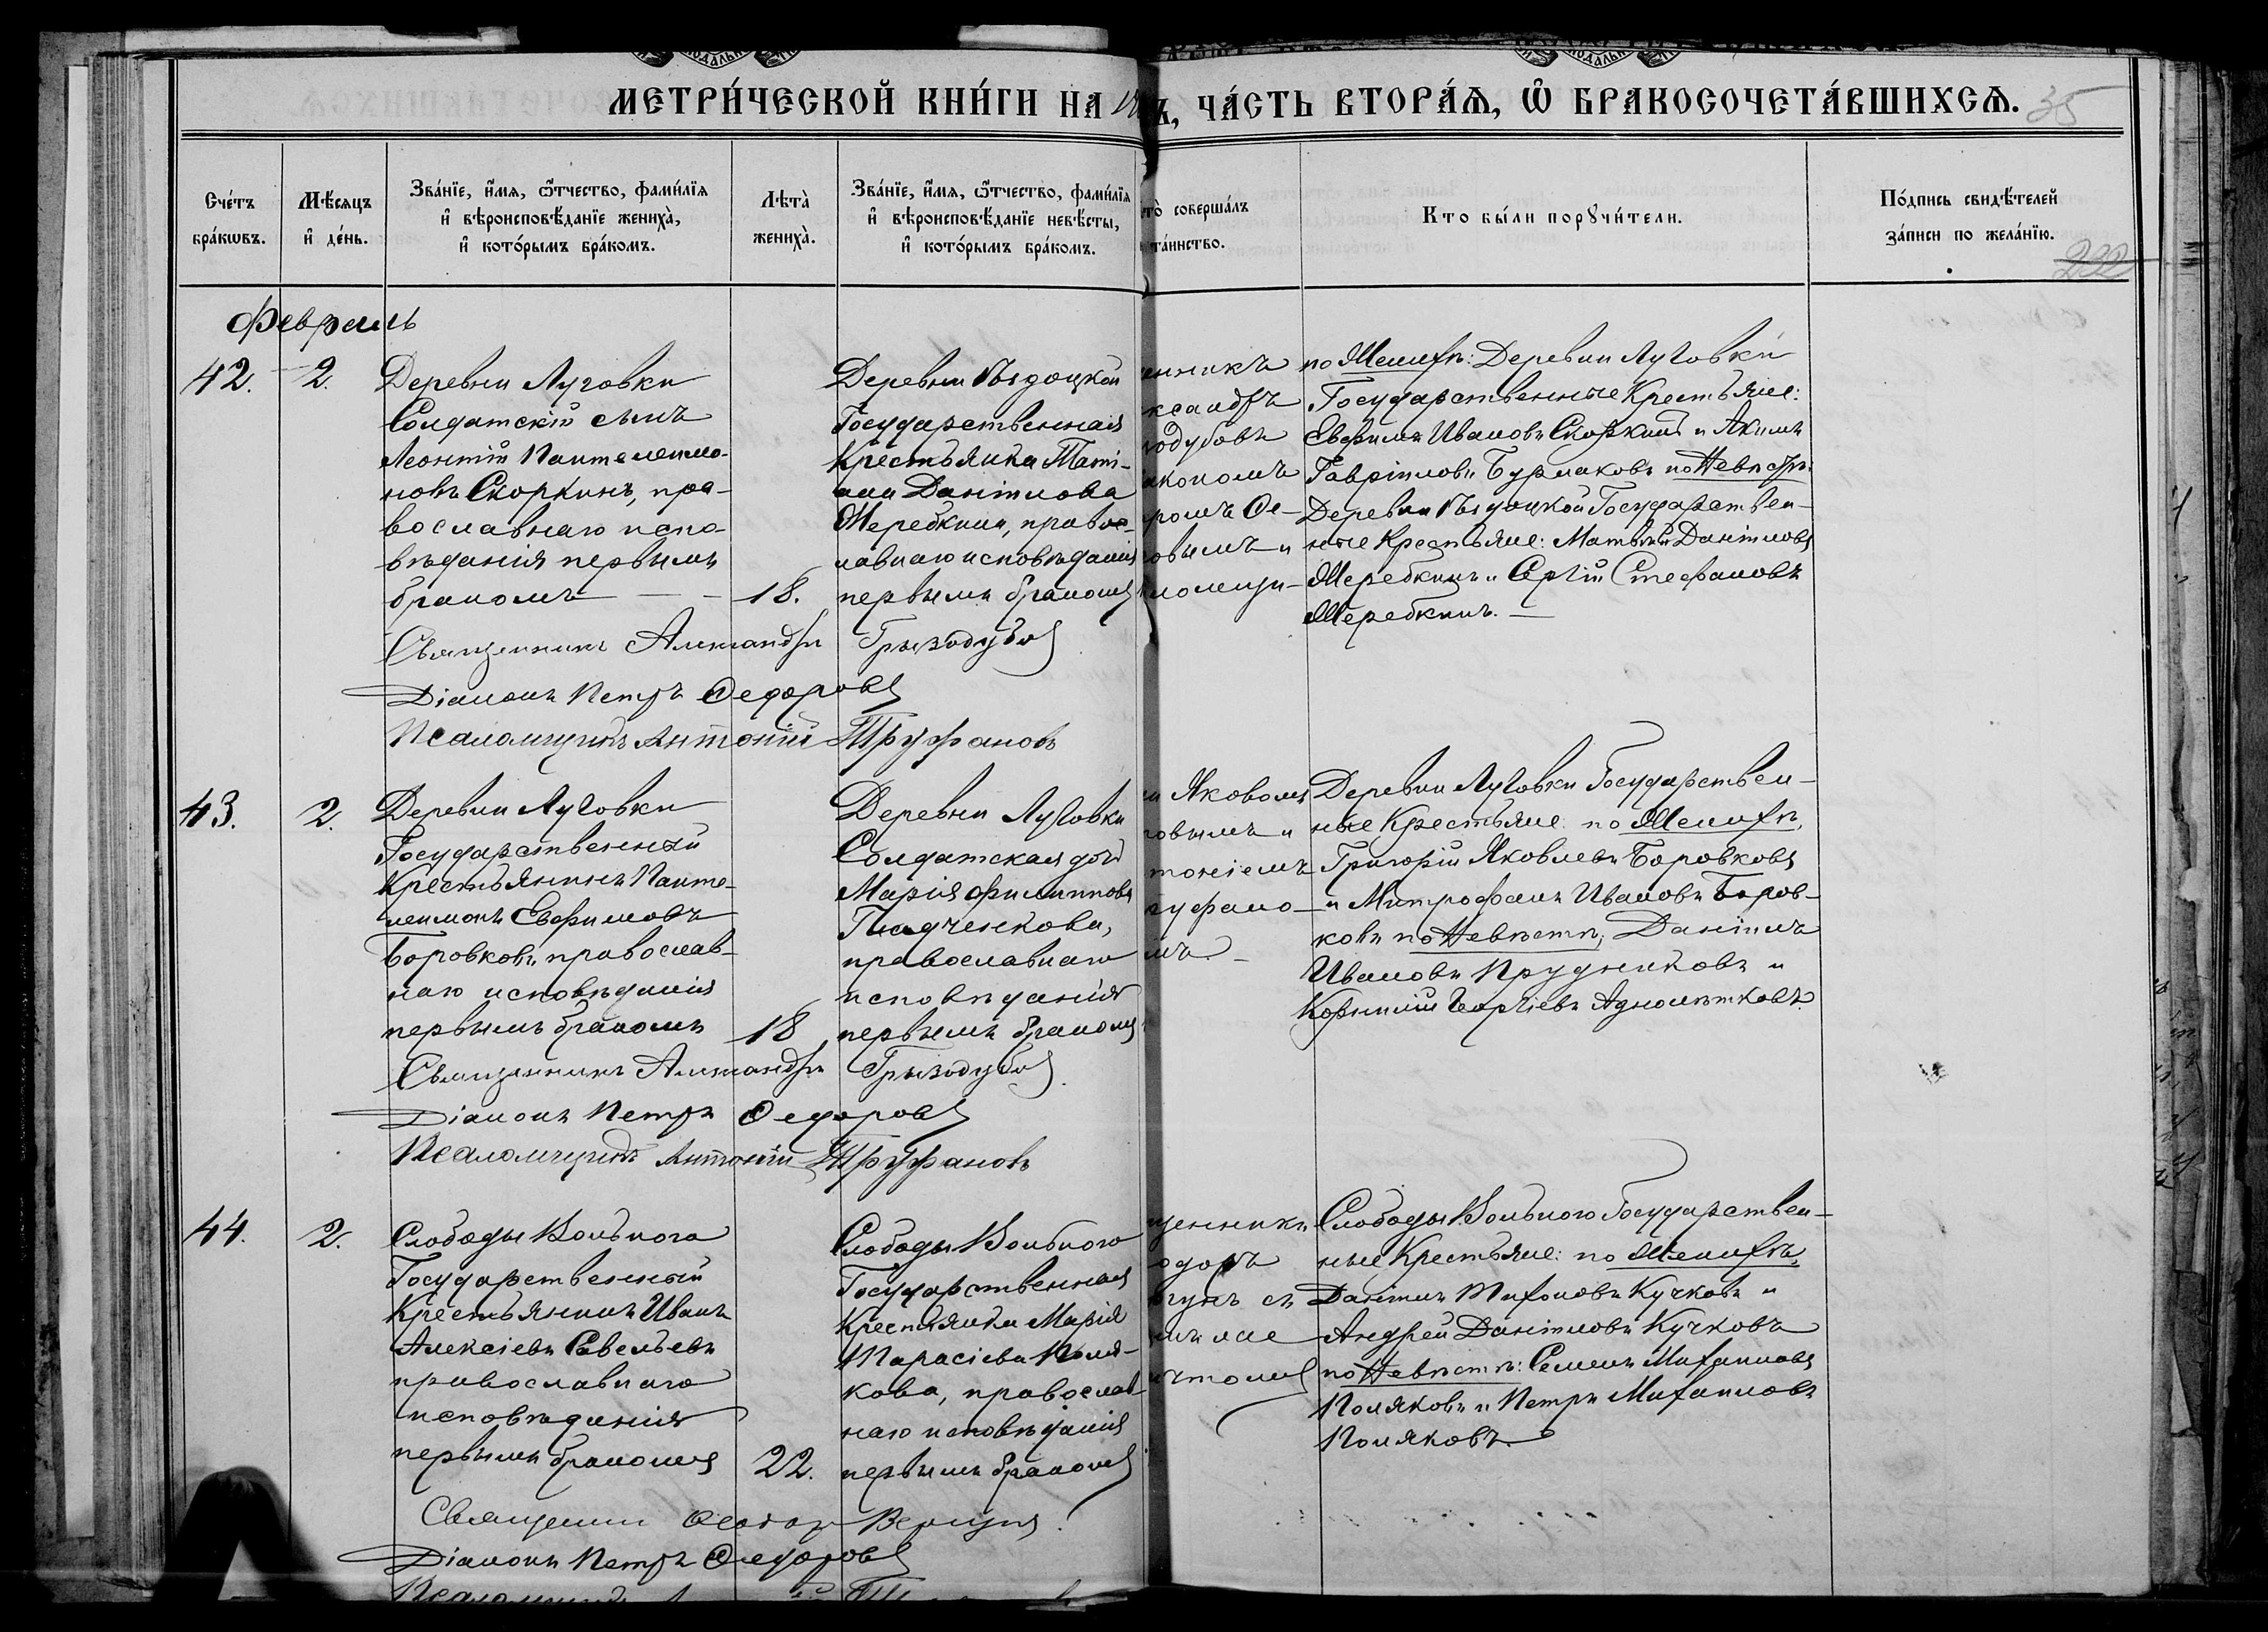 МЕТРИ́ЧЕСКОЙ КНИ́ГИ НА
Ъ, ЧА́СТЬ ВТОРА́Я, Ѿ БРАКОСОЧЕТА́ВШИХСѦ. 35
Сче́тъ бра́кѡвъ.
Мѣ́сяцъ и҆ де́нь.
Зва́нїе, и҆́мя, ѻ҆́тчество, фами́лїя
и҆ вѣроисповѣ́данїе жениха̀,
и҆ кото́рымъ бра́комъ.
Лѣта̀ жениха̀.
Зва́нїе, и҆́мя, ѻ҆́тчество, фами́лїя
и҆ вѣроисповѣ́данїе невѣ́сты,
и҆ кото́рымъ бра́комъ.
то̀ соверша́лъ
та́инство.
Кто бы́ли порꙋчи́тели.
По́дпись свидѣ́телей
за́писи по жела́нїю.
232
Февраль
42.
2.
Деревни Луговки
Солдатскій сынъ
Леонтій Пантелеимо-
новъ Скоркинъ, пра-
вославнаго испо-
вѣданія первымъ
бракомъ
18.
Деревни
Государственная
Крестьянка Таті-
ана Даніилова
Жеребкина, правос-
лавнаго исповѣданія
первымъ бракомъ
енникъ
ксандръ
одубовъ
іакономъ
ромъ Ѳе-
овымъ и
ломщи-
по Женихѣ: Деревни Луговки
Государственные Крестьяне:
Евфимъ Ивановъ Скоркинъ и Акимъ
Гавріиловъ Бурлаковъ по Невѣстѣ:
Деревни Государствен-
ные Крестьяне: Матвѣй Даніиловъ
Жеребкинъ и Сергій Стефановъ
Жеребкинъ.
Священникъ Александръ Грызодубовъ
Діаконъ Петръ Ѳедоровъ
Псаломщикъ Антоній Труфановъ
43.
2.
Деревни Луговки
Государственный
Крестьянинъ Панте-
леимонъ Евфимовъ
Боровковъ, православ-
наго исповѣданія
первымъ бракомъ
18
Деревни Луговки
Солдатская дочь
Марія Филиппова
Гладченкова,
православнаго
исповѣданія
первымъ бракомъ
Яковомъ
овымъ и
тоніемъ
руфано-
мъ.
Деревни Луговки Государствен-
ные Крестьяне: по Женихѣ,
Григорій Яковлевъ Боровковъ
и Митрофанъ Ивановъ Боров-
ковъ по Невѣстѣ; Даніилъ
Ивановъ Прудниковъ и
Корнилій Георгіевъ Адноплѣтковъ.
Священникъ Александръ Грызодубовъ
Діаконъ Петръ Ѳедоровъ
Псаломщикъ Антоній Труфановъ
44.
2.
Слободы Вольнога
Государственный
Крестьянинъ Иванъ
Алексіевъ Савельевъ
православнаго
исповѣданія
первымъ бракомъ
22.
Слободы Вольнаго
Государственная
Крестьянка Марія
Тарасіева Поля-
кова, православ
наго исповѣданія
первымъ бракомъ
щенникъ
одоръ
ргунъ съ
мъ же
чтомъ
Слободы Вольного Государствен-
ные Крестьяне: по Женихѣ,
Даніилъ Тихоновъ Кучковъ и
Андрей Даніиловъ Кучковъ
по Невѣстѣ: Семенъ Михаиловъ
Поляковъ и Петръ Михаиловъ
Поляковъ.
Священникъ Ѳеодоръ Вергунъ
Діаконъ Петръ Ѳедоровъ